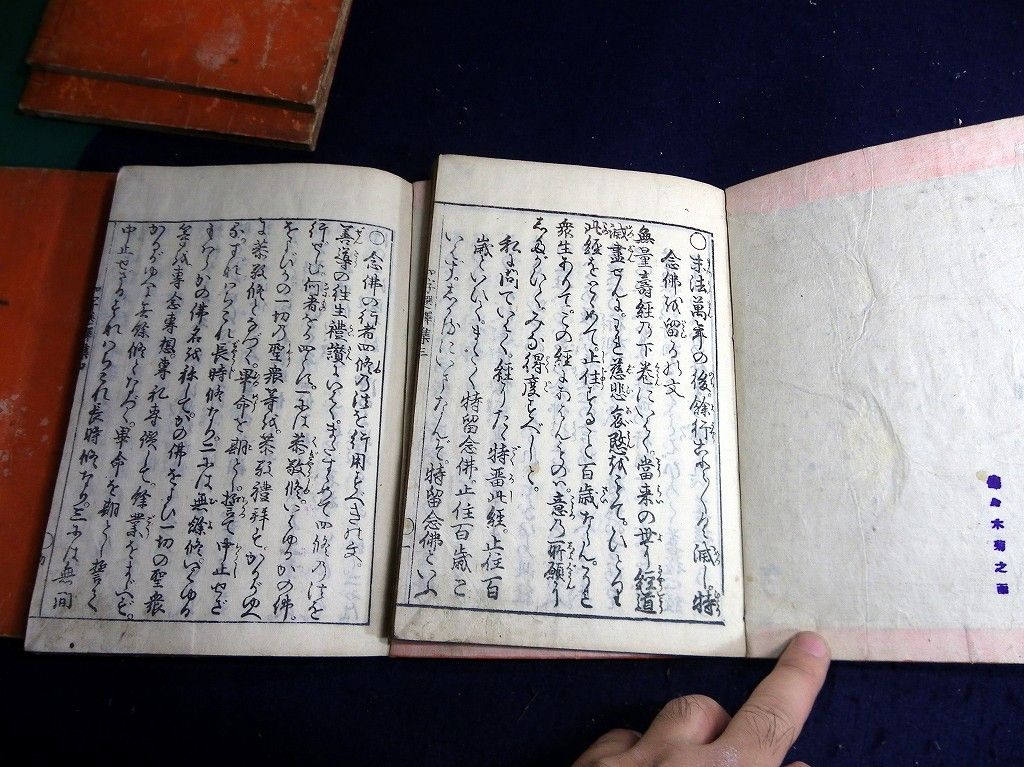 〇末法萬年の後。餘行ことごとく滅し特
念佛を留るの文
無量壽經乃下巻にいはく。當来の世に經道
滅盡せんに。われ慈悲哀愍をもて。ひとり
此經をとゞめて止住する事百歳ならん。それ
衆生ありて。この經にあはんもの。意の所願に
したがひてみな得度すべしと。
私に問ていはく。經にたゞ特留此經。止住百
歳といひて。まさしく特留念佛。止住百歳と
いはず。しかるにいまなんぞ特留念佛といふ
〇念佛の行者四修乃法を行用すべき乃文。
善導の往生禮讃にいはく。またすゝめて四修乃法を
行せしむ。何者をか四とす。一には恭敬修。いはゆるかの佛。
をよびかの一切の聖衆等を。恭敬禮拝す。かるがゆへ
に恭敬修となづく。畢命を期とし。誓て中止せざ
る。すなはちこれ長時修なり。二には無餘修。いはゆる
もつぱらかの佛名を称して。かの佛をよひ一切の聖衆
等を専念専想。専礼専讃して。餘業をまじへず。
かるがゆへに無餘修となづく。畢命を期とし。誓て
中止せざる。すなはちこれ長時修なり。三には無間
集三
木菊之